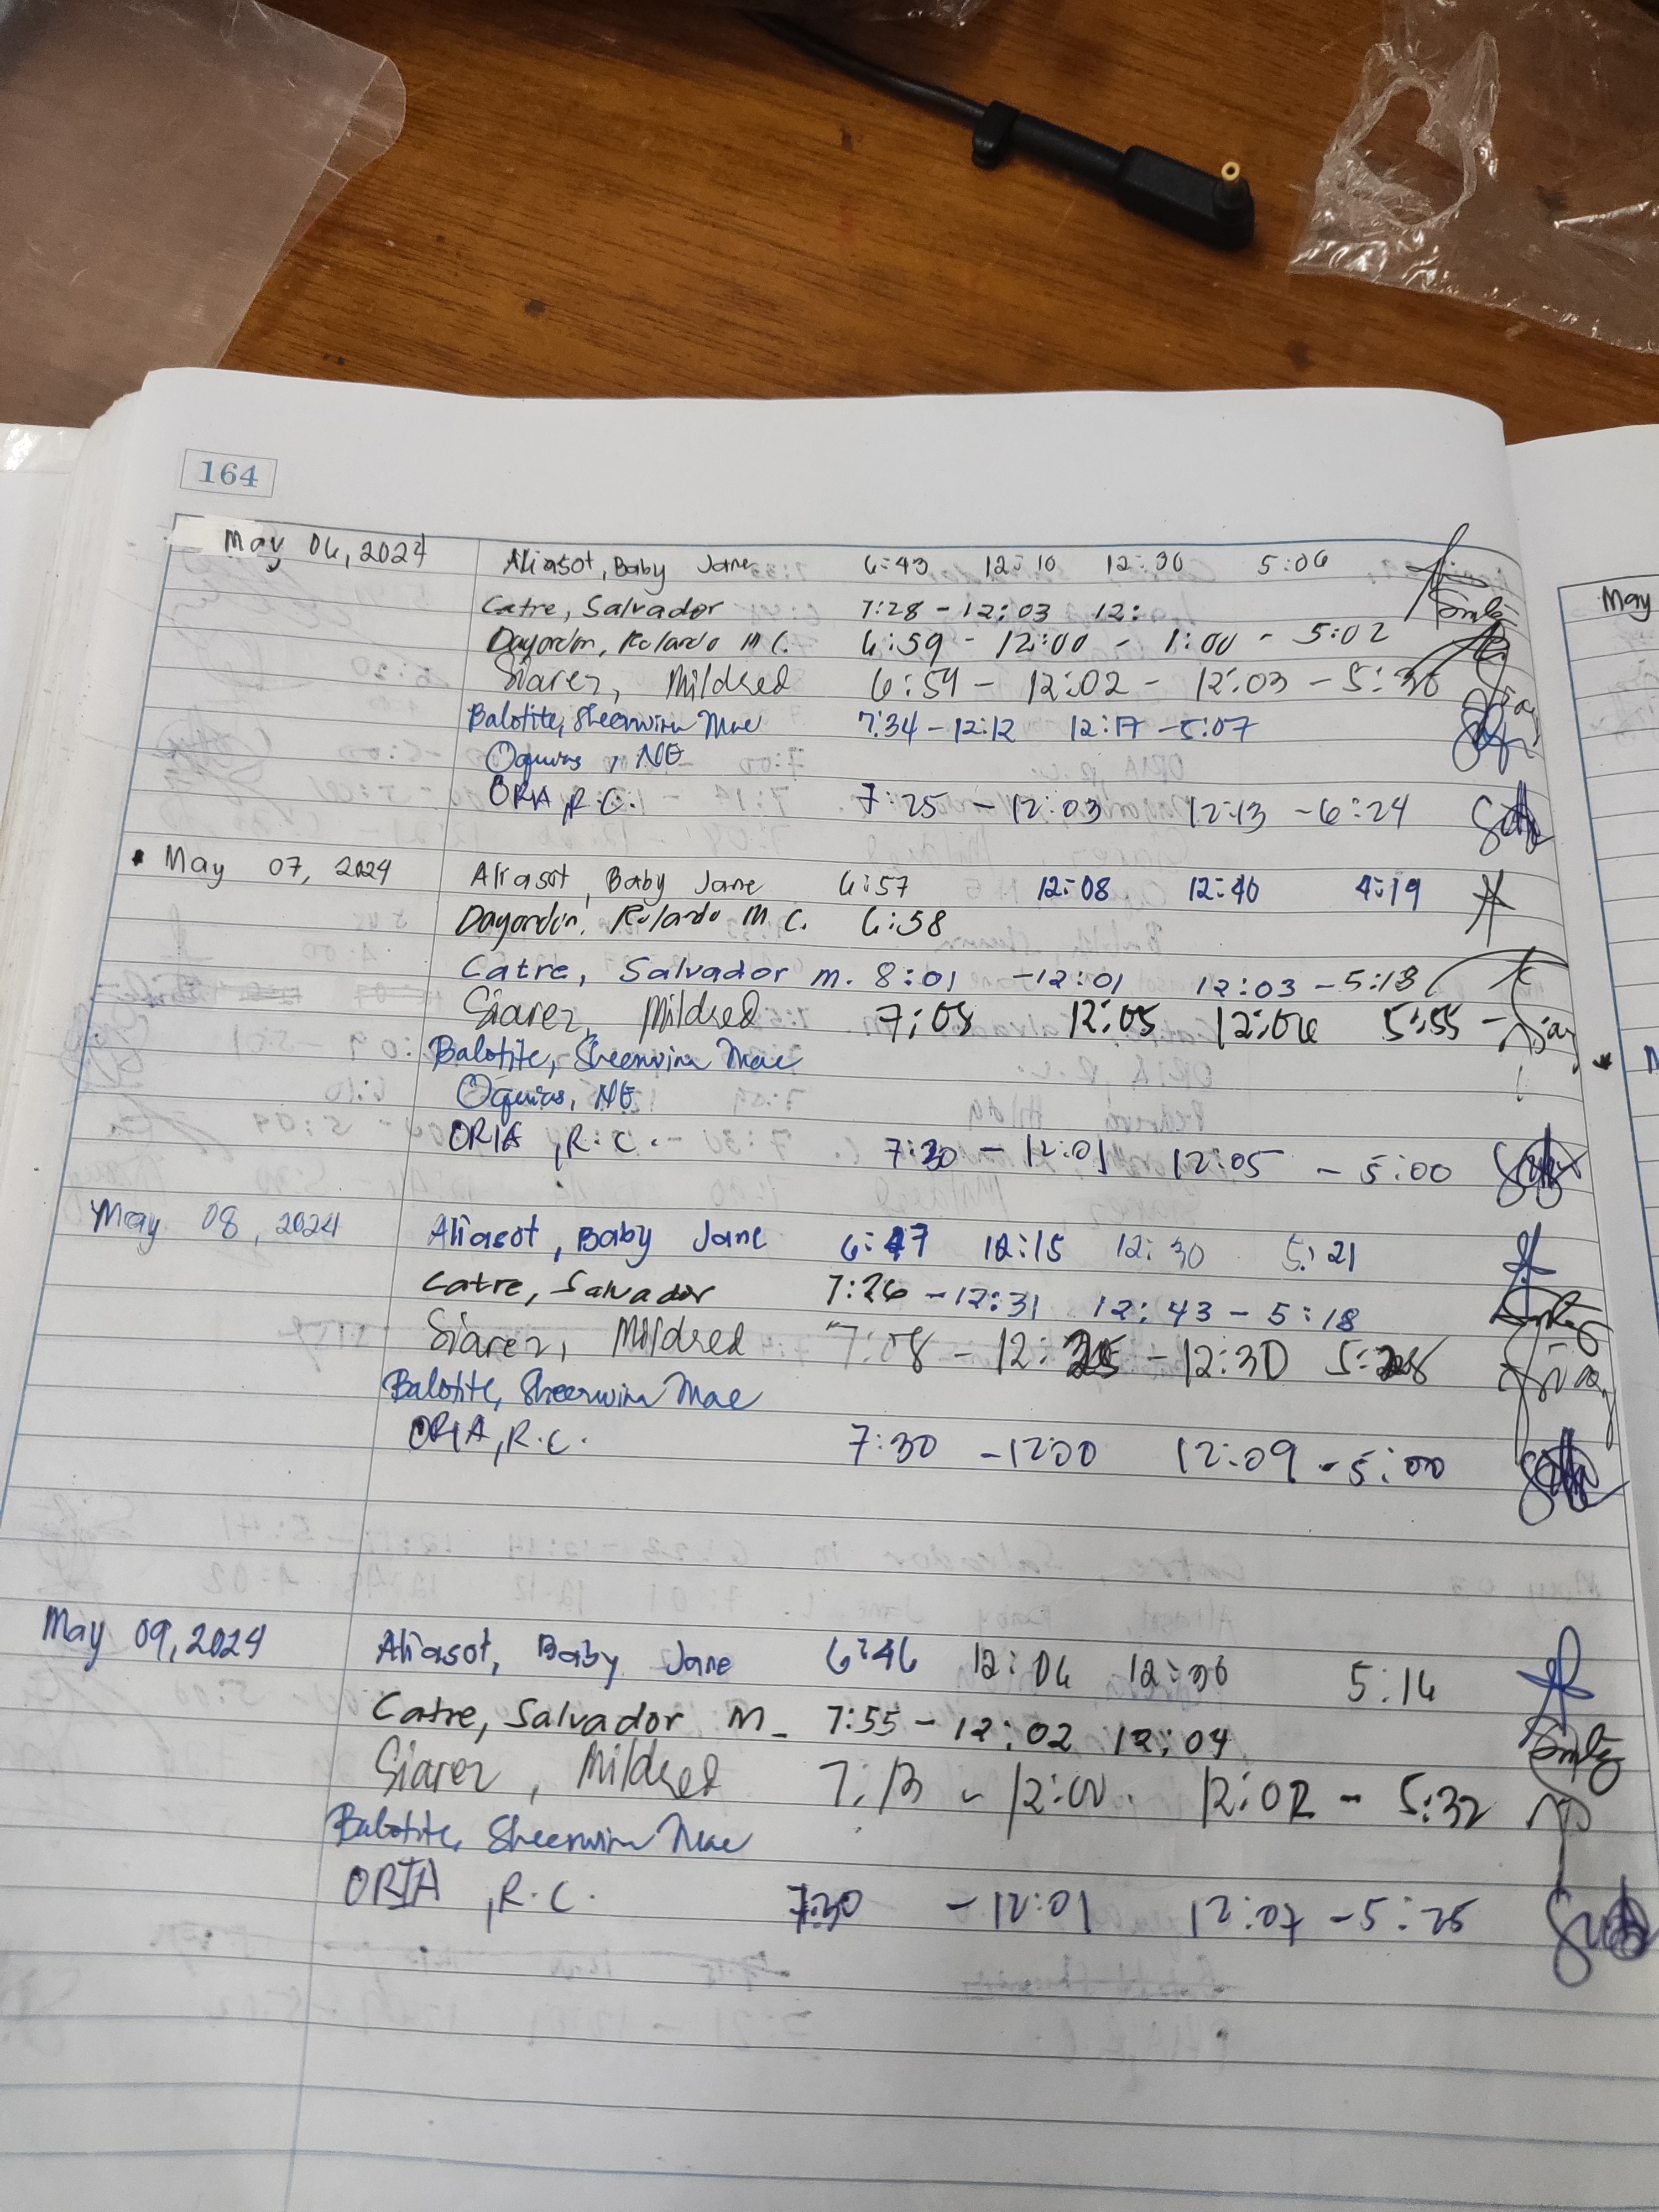 164
May 06, 2024
Aliasot, Baby Jane 6:43 12:10 12:30 5:06
Catre, Salvador 7:28 - 12:03 12:
Dayordin, Rolando M C. 6:59 - 12:00 - 1:00 - 5:02
Siarez, Mildred 6:59 - 12:02 - 12:03 - 5:30
Balotite, Sheenwina Mae 7:34 - 12:12 12:17 - 5:07
Oquias, NE
ORIA, R.C. 7:25 - 12:03 12:13 - 6:24
May 07, 2024
Aliasot, Baby Jane 6:57 12:08 12:40 4:19
Dayordin, Rolando M. C. 6:58
Catre, Salvador m. 8:01 - 12:01 12:03 - 5:13
Siarez, Mildred 7:08 12:05 12:06 5:55 -
Balotite, Sheenwina Mae
Oquias, NE
ORIA, R. C. 7:30 - 12:01 12:05 - 5:00
May 08, 2024
Aliasot, Baby Jane 6:47 12:15 12:30 5:21
Catre, Salvador 7:26 - 12:31 12:43 - 5:18
Siarez, Mildred 7:08 - 12:25 - 12:30 5:28
Balotite, Sheenwina Mae
ORIA, R.C. 7:30 - 12:00 12:09 - 5:00
May 09, 2024
Aliasot, Baby Jane 6:46 12:06 12:36 5:16
Catre, Salvador M - 7:55 - 12:02 12:04
Siarez, Mildred 7:13 - 12:00 12:02 - 5:32
Balotite, Sheenwina Mae
ORIA, R.C. 7:30 - 12:01 12:07 - 5:25
May